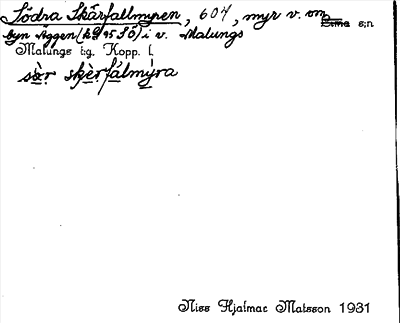 Södra Skärfallmyren, 607, myr v. om s:n
byn Äggen (bl 95 SÖ) i v. Malungs
Malungs i.g. Kopp. l.
sø̀r skèrfálmýra
Niss Hjalmar Matsson 1931